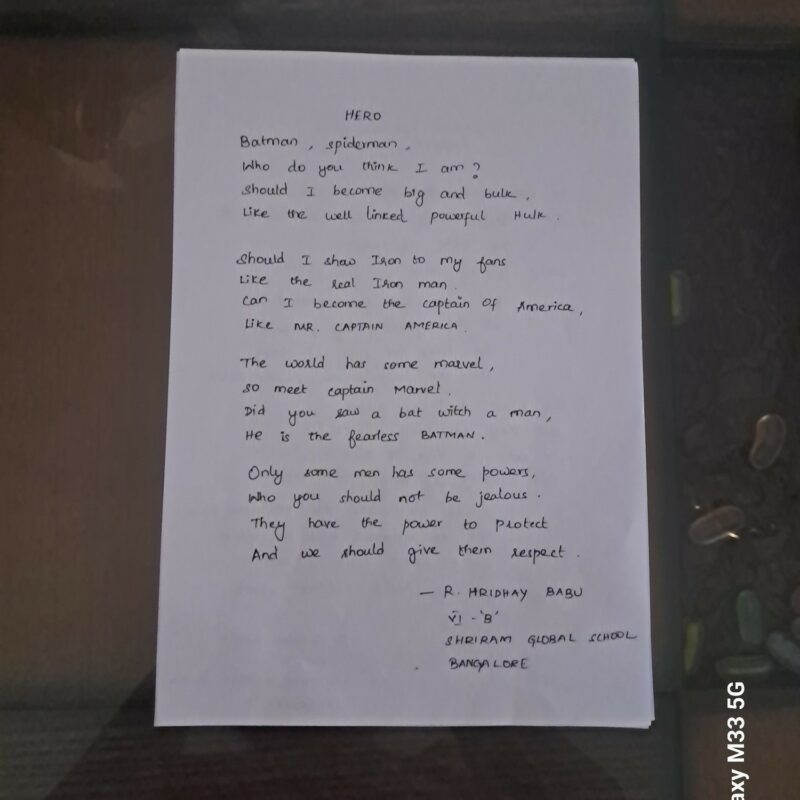 HERO
Batman, spiderman,
Who do you think I am?
Should I become big and bulk,
Like the well linked powerful Hulk.
Should I show Iron to my fans
Like the real Iron man.
Can I become the captain of America,
Like MR. CAPTAIN AMERICA.
The world has some marvel,
So meet captain Marvel.
Did you saw a bat witch a man,
He is the fearless BATMAN.
Only some men has some powers,
Who you should not be jealous.
They have the power to protect
And we should give them respect.
— R. HRIDHAY BABU
VI - 'B'
SHRIRAM GLOBAL SCHOOL
BANGALORE
axy M33 5G